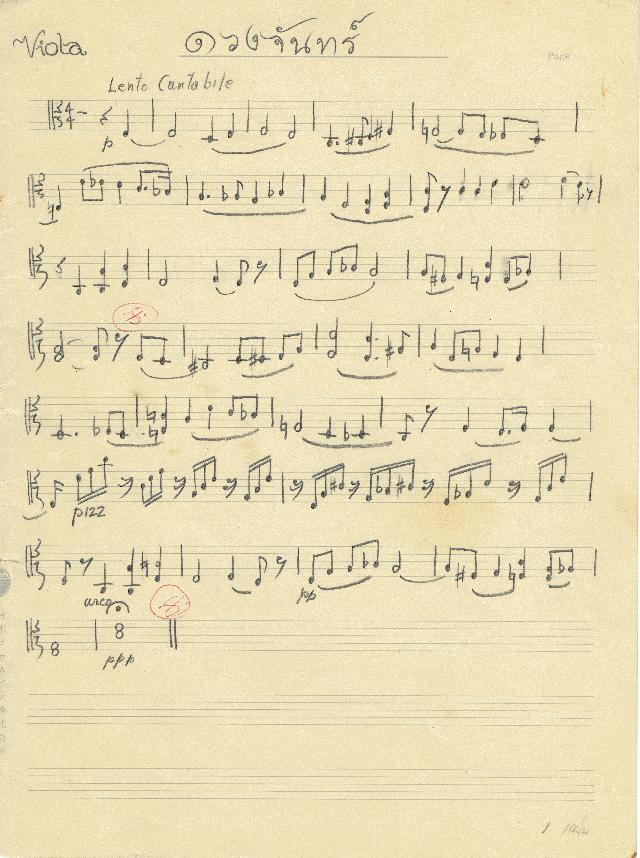 Viola ดวงจันทร์
Page
Lento Cantabile
4
4
p
pizz
arco
pp
ppp